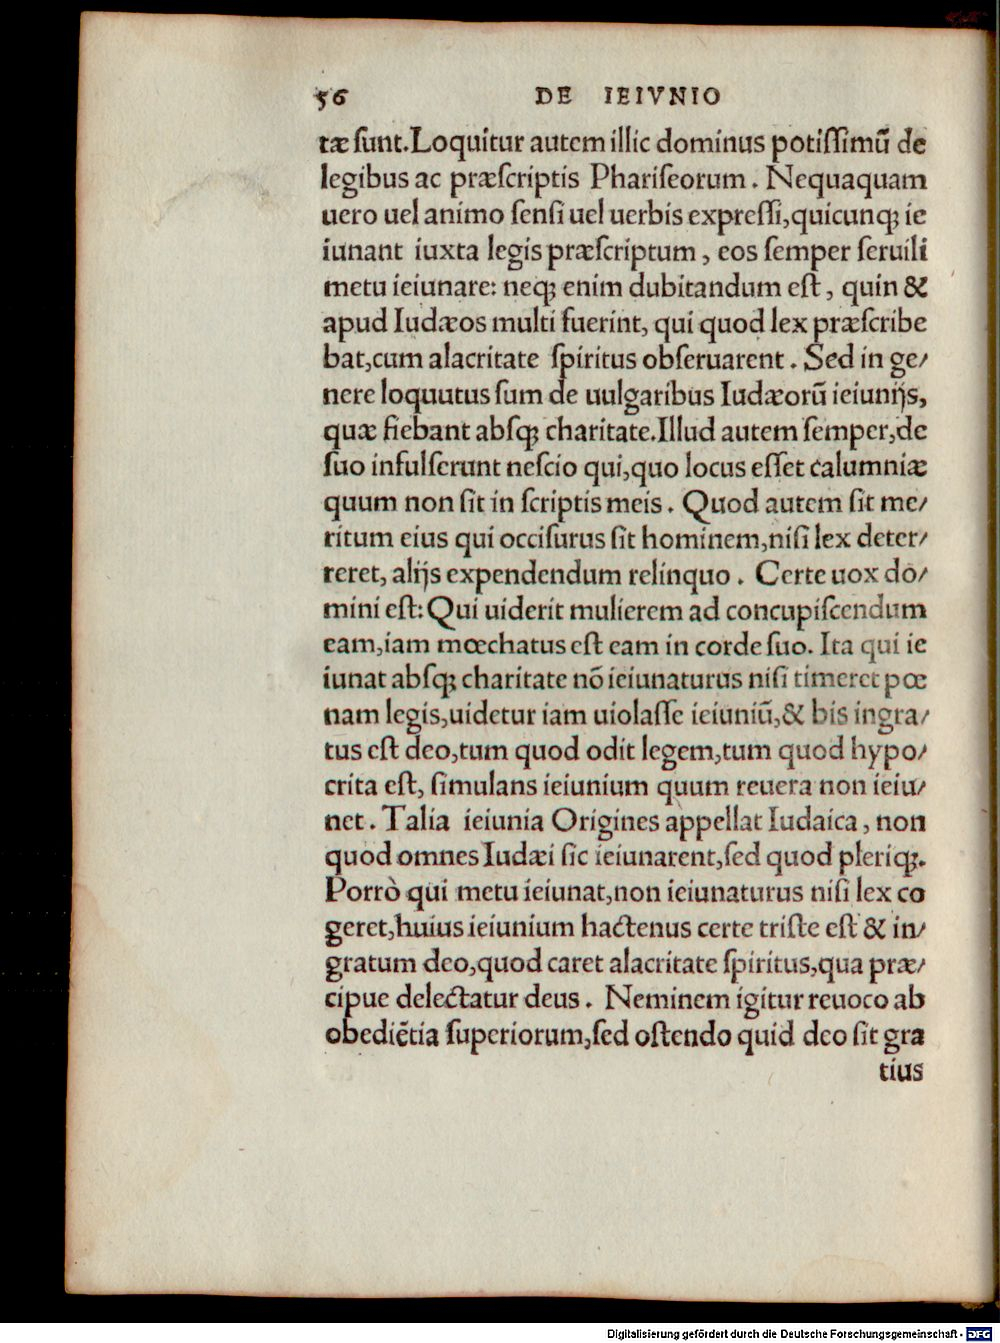 56 DE IEIVNIO
tæ ſunt.Loquitur autem illic dominus potiſſimũ de
legibus ac præſcriptis Phariſeorum. Nequaquam
uero uel animo ſenſi uel uerbis expreſſi,quicunq; ie
iunant iuxta legis præſcriptum, eos ſemper ſeruili
metu ieiunare: neq; enim dubitandum eſt, quin &
apud Iudæos multi fuerint, qui quod lex præſcribe
bat,cum alacritate ſpiritus obſeruarent. Sed in ge/
nere loquutus ſum de uulgaribus Iudæorũ ieiunijs,
quæ fiebant abſq; charitate.Illud autem ſemper,de
ſuo infulſerunt neſcio qui,quo locus eſſet calumniæ
quum non ſit in ſcriptis meis. Quod autem ſit me/
ritum eius qui occiſurus ſit hominem,niſi lex deter/
reret, alijs expendendum relinquo. Certe uox do/
mini eſt: Qui uiderit mulierem ad concupiſcendum
eam,iam mœchatus eſt eam in corde ſuo. Ita qui ie
iunat abſq; charitate nõ ieiunaturus niſi timeret pœ
nam legis,uidetur iam uiolaſſe ieiuniũ,& bis ingra/
tus eſt deo,tum quod odit legem,tum quod hypo/
crita eſt, ſimulans ieiunium quum reuera non ieiu/
net. Talia ieiunia Origines appellat Iudaica, non
quod omnes Iudæi ſic ieiunarent,ſed quod pleriq;.
Porrò qui metu ieiunat,non ieiunaturus niſi lex co
geret,huius ieiunium hactenus certe triſte eſt & in/
gratum deo,quod caret alacritate ſpiritus,qua præ/
cipue delectatur deus. Neminem igitur reuoco ab
obediẽtia ſuperiorum,ſed oſtendo quid deo ſit gra
tius
Digitalisierung gefördert durch die Deutsche Forschungsgemeinschaft - DFG